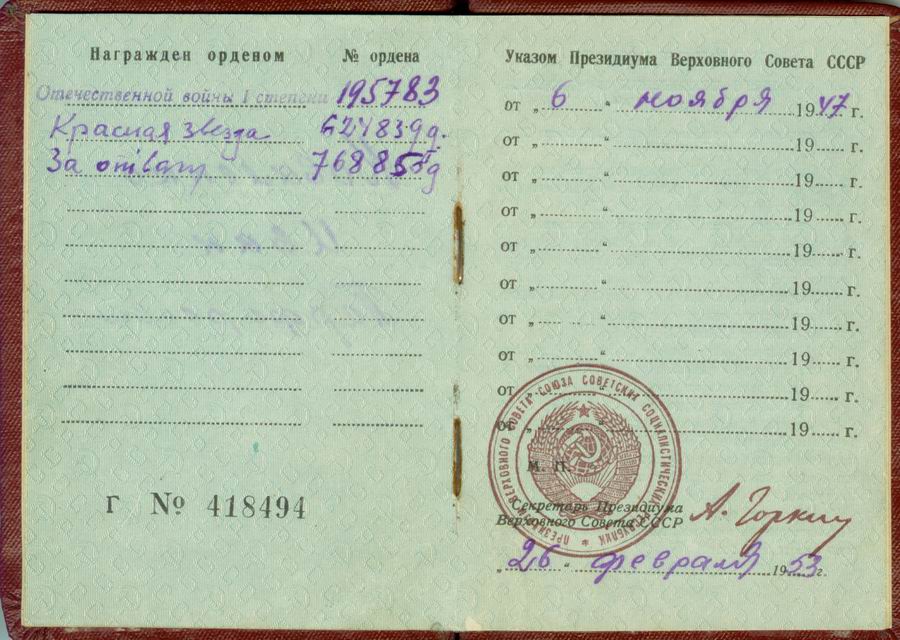 Награжден орденом № ордена
Отечественной войны I степени 195783
Красная звезда
За отвагу
Г № 418494
Указом Президиума Верховного Совета СССР
от „ 6 “ ноября 1947 г.
от „ “ 19 г.
от „ “ 19 г.
от „ “ 19 г.
от „ “ 19 г.
от „ “ 19 г.
от „ “ 19 г.
от „ “ 19 г.
от „ “ 19 г.
от „ “ 19 г.
М. П.
ПРЕЗИДИУМ ВЕРХОВНОГО СОВЕТА СОЮЗА СОВЕТСКИХ СОЦИАЛИСТИЧЕСКИХ РЕСПУБЛИК
Секретарь Президиума
Верховного Совета СССР А. Горкин
„ 26 “ февраля 1953 г.